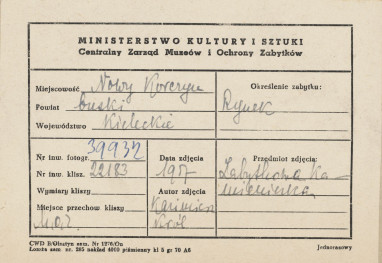 MINISTERSTWO KULTURY I SZTUKI
Centralny Zarząd Muzeów i Ochrony Zabytków
Miejscowość Nowy Korczyn
Powiat buski
Województwo Kieleckie
Określenie zabytku:
Rynek
Nr inw. fotogr. 39932
Nr inw. klisz. 22183
Wymiary kliszy
Miejsce przechow. kliszy
Data zdjęcia
Autor zdjęcia
Kazimierz
Król
Przedmiot zdjęcia:
Zabytkowa ka-
mieniczka
CWD R/Olsztyn zam. Nr 1276/Ou
Łomża zam nr. 285 nakład 4000 piśmienny kl 5 gr 70 A6
Jednorazowy